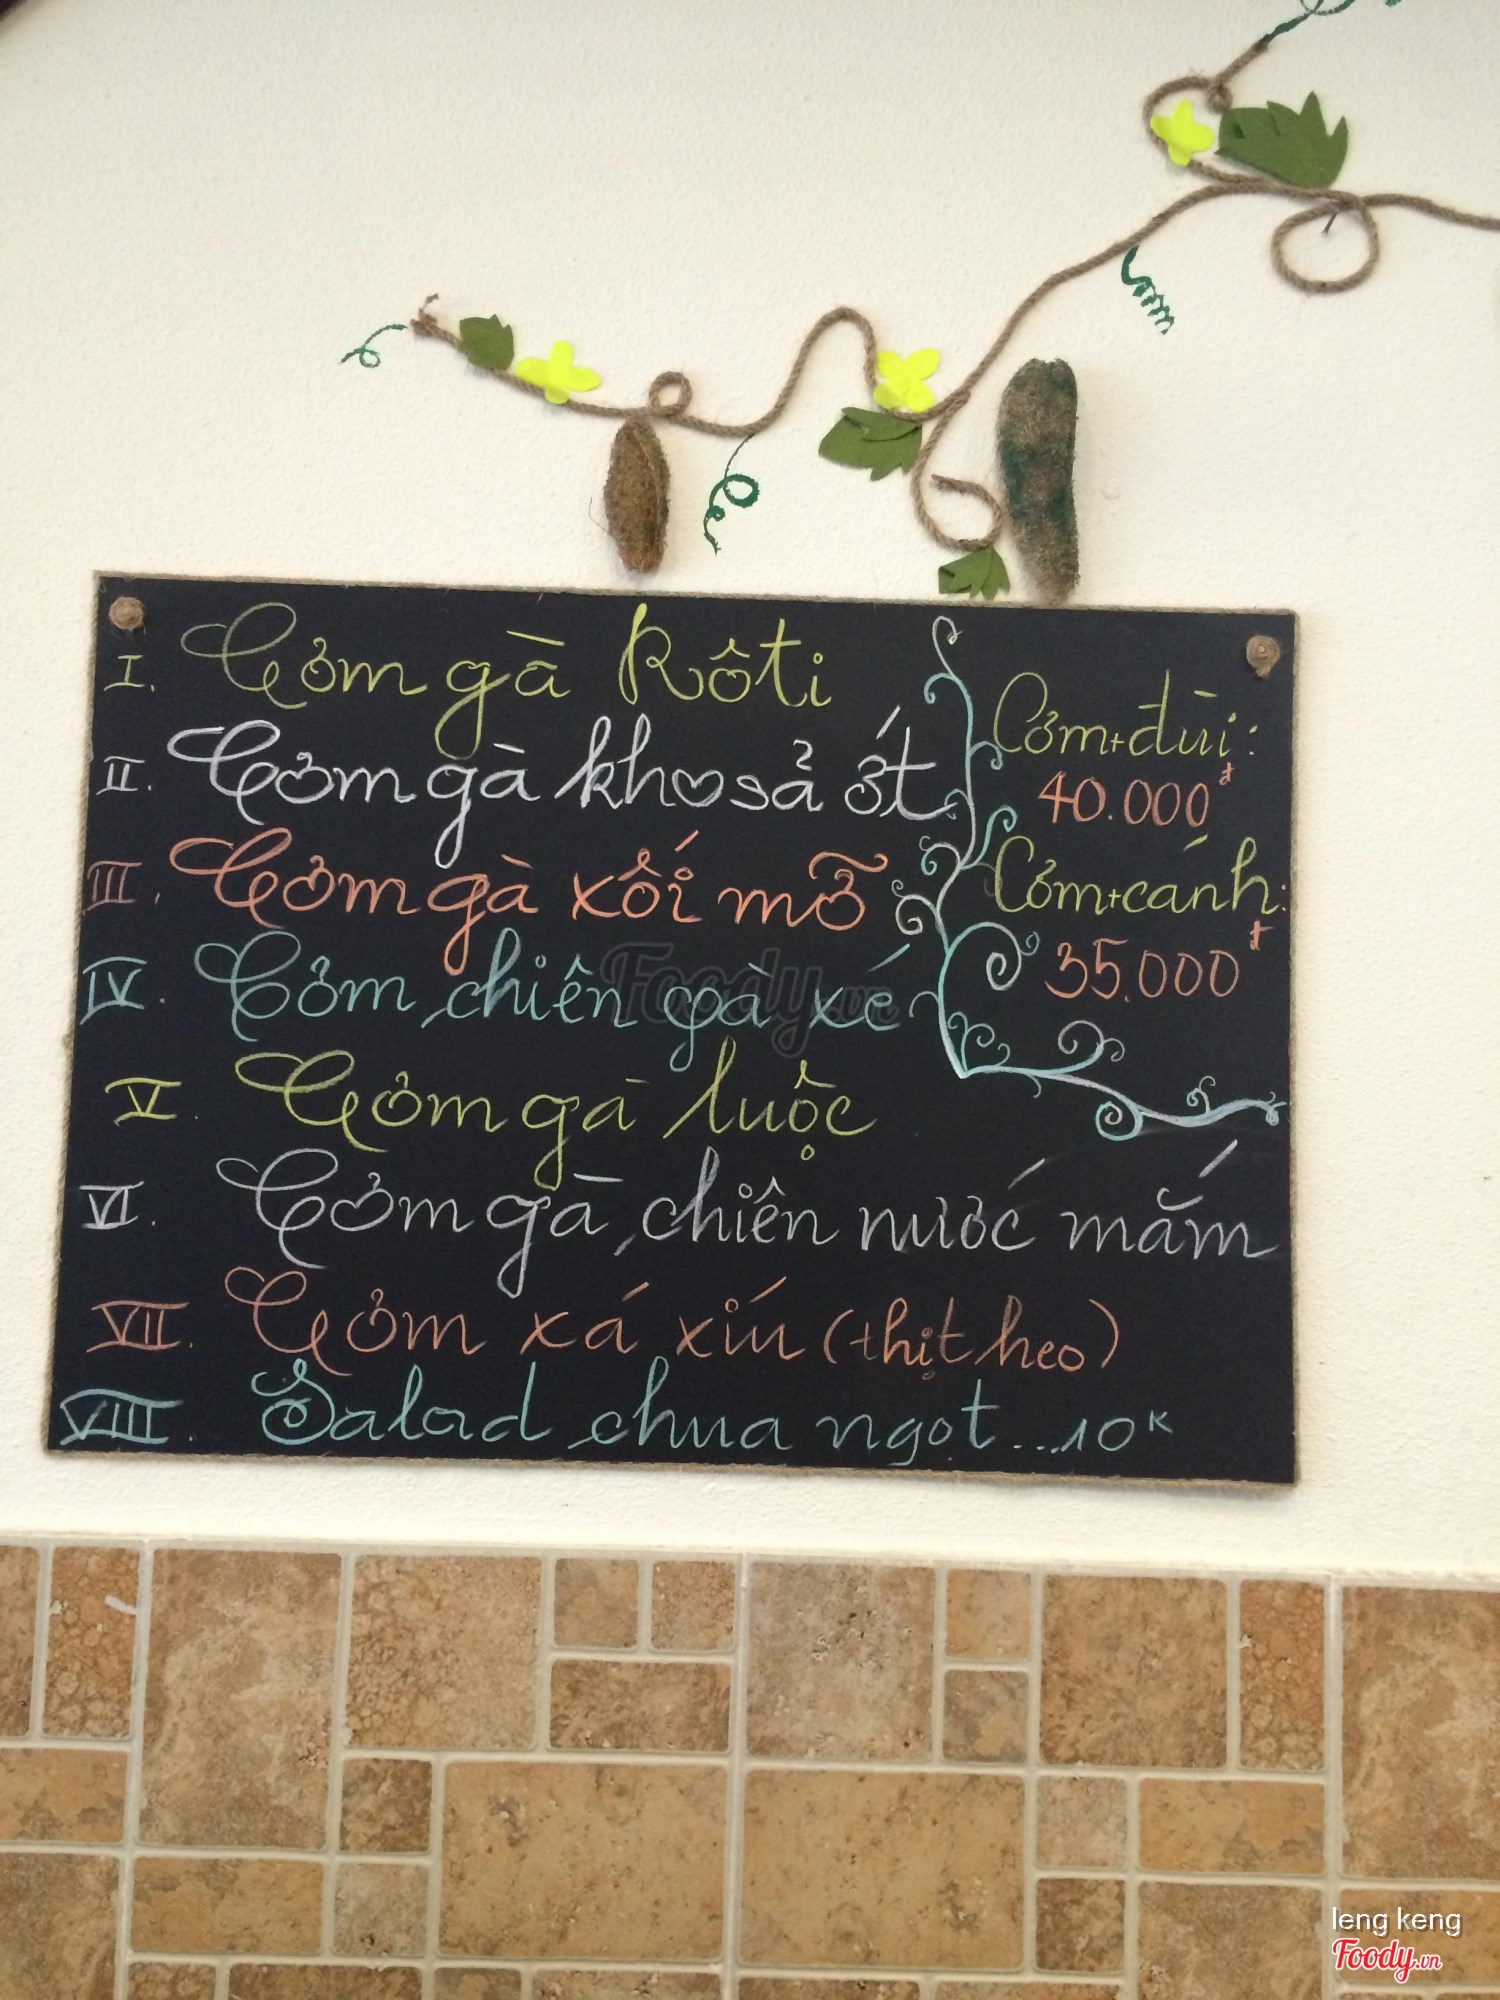 I. Cơm gà Rôti
II. Cơm gà kho sả ớt
III. Cơm gà xối mỡ
IV. Cơm chiên gà xé
V. Cơm gà luộc
VI. Cơm gà chiên nước mắm
VII. Cơm xá xíu (thịt heo)
VIII. Salad chua ngọt...10K
Cơm+đùi:
40.000đ
Cơm+cánh:
35.000đ
Foody.vn
leng keng
Foody.vn